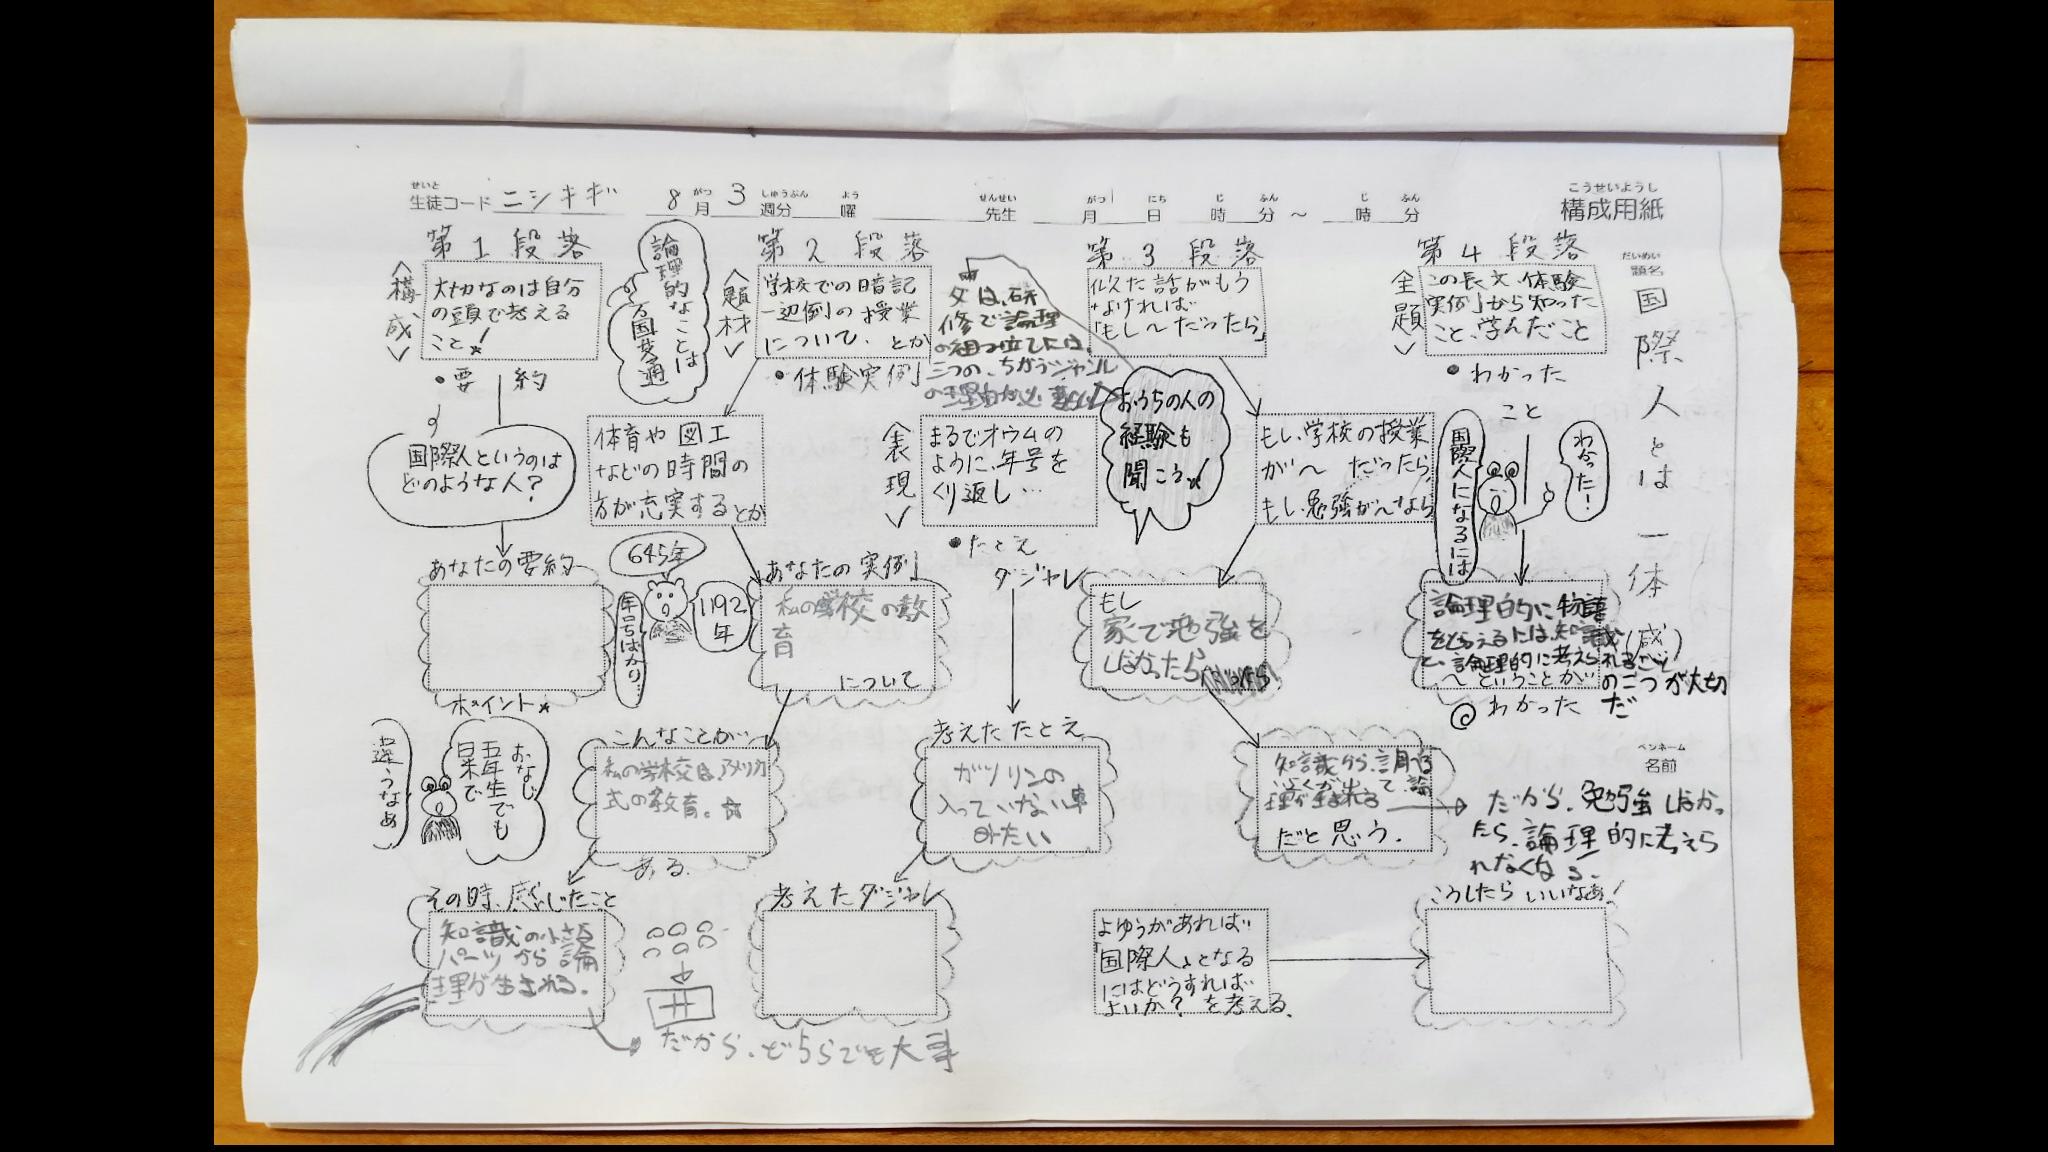 せいと
生徒コード ニシキギ
8月 3週分 曜 先生 月 日 時 分 ～ 時 分
がつ しゅうぶん よう せんせい がつ にち じ ふん じ ふん
こうせいようし
構成用紙
だいめい
題名
国際人とは一体
(感)
第1段落
＜構成＞
大切なのは自分
の頭で考える
こと!
•要約
国際人というのは
どのような人?
あなたの要約
ポイント
論理的なことは
万国共通
第2段落
＜題材＞
学校での暗記
一辺倒の授業
について、とか
•体験実例
体育や図工
などの時間の
方が充実するとか
645年
1192
年
年号ばかり…
あなたの実例
私の学校の教
育
について
こんなことが…
私の学校は、アメリカ
式の教育。
ある。
おなじ
五年生でも
日米で
違うなぁ
その時、感じたこと
知識の小さな
パーツから論
理が生まれる。
だから、どちらでも大事
父は、研
修で論理
の組み立てには、
三つの、ちがうジャンル
の理由が必要
おうちの人の
経験も
聞こう
＜表現＞
まるでオウムの
ように、年号を
くり返し…
•たとえ
ダジャレ
考えたたとえ
ガソリンの
入っていない車
みたい
考えたダジャレ
第3段落
似た話がもう
なければ
「もし～だったら」
もし、学校の授業
が～だったら
もし、勉強が～なら
もし
家で勉強を
しなかったら
知識から、調べる
だと思う。
だから、勉強しなかっ
たら、論理的に考えら
れなくなる。
よゆうがあれば
「国際人」となる
にはどうすれば
よいか？を考える。
こうしたらいいなぁ!
第4段落
＜主題＞
この長文、体験
実例から知った
こと、学んだこと
•わかった
こと
国際人になるには
わかった!
論理的に物語
をとらえるには、知識
と、論理的に考えられること
の二つが大切
だ
～ということが…
わかった
ペンネーム
名前